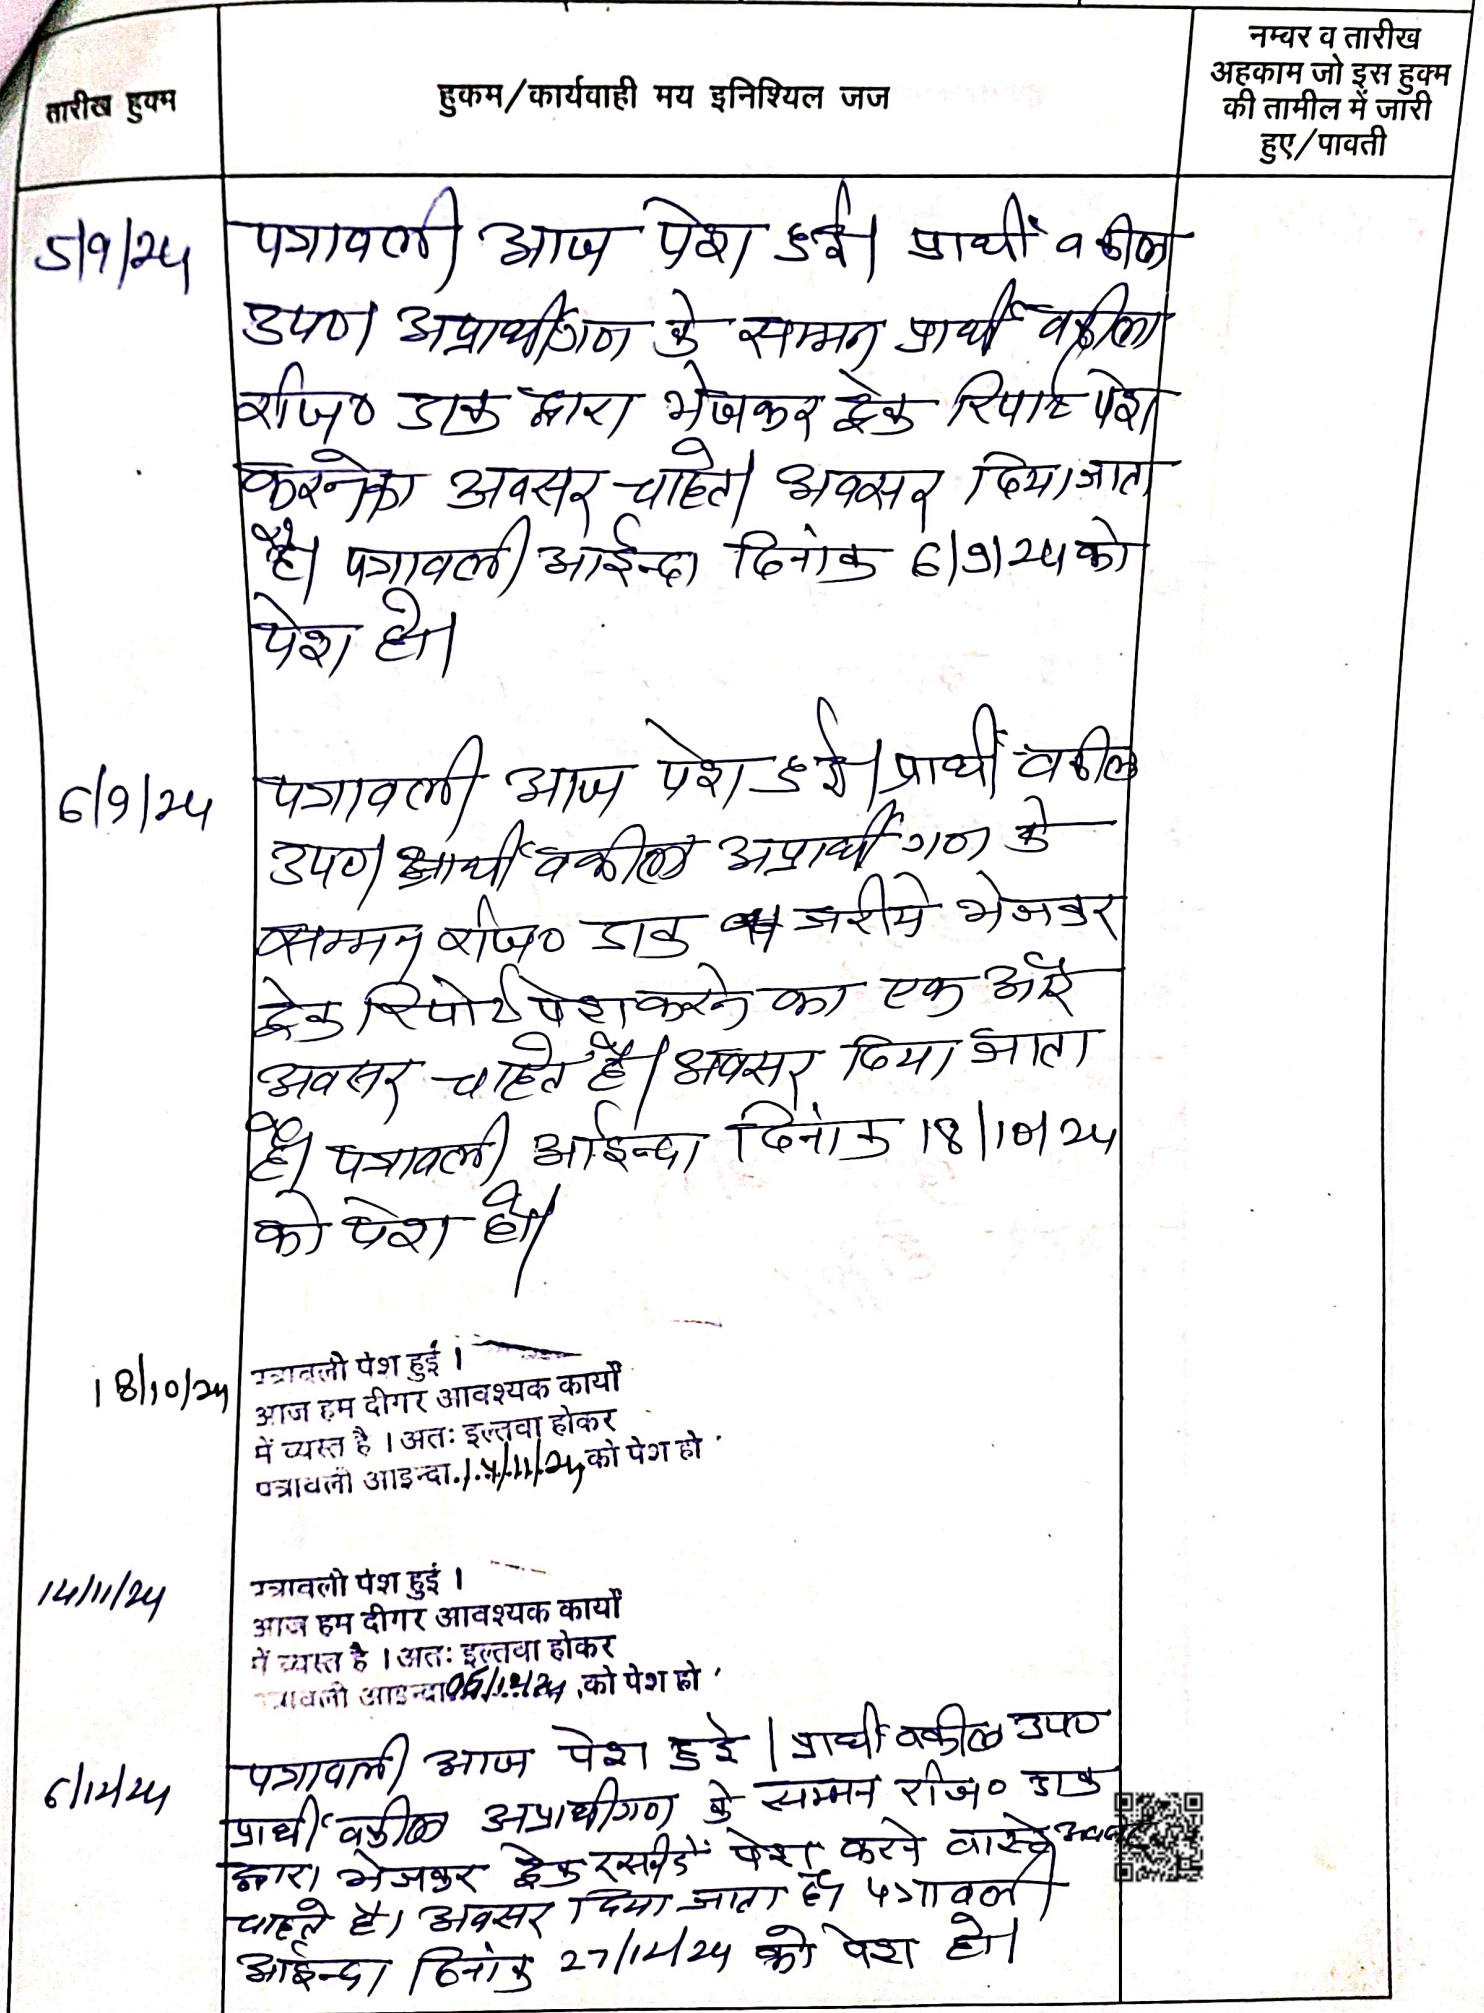 तारीख हुक्म
हुकम/कार्यवाही मय इनिश्यिल जज
नम्वर व तारीख
अहकाम जो इस हुक्म
की तामील में जारी
हुए/पावती
5/9/24
पत्रावली आज पेश हुई। प्रार्थी वकील
उप०। अप्रार्थीगण के सम्मन प्रार्थी वकील
रजि० डाक द्वारा भेजकर ट्रेक रिपोर्ट पेश
करने का अवसर चाहते। अवसर दिया जाता
है। पत्रावली आईन्दा दिनांक 6/9/24 को
पेश हो।
6/9/24
पत्रावली आज पेश हुई। प्रार्थी वकील
उप०। प्रार्थी वकील अप्रार्थीगण के
सम्मन रजि० डाक जरीये भेजकर
ट्रेक रिपोर्ट पेश करने का एक और
अवसर चाहते है। अवसर दिया जाता
है। पत्रावली आईन्दा दिनांक 18/10/24
को पेश हो।
18/10/24
पत्रावली पेश हुई ।
आज हम दीगर आवश्यक कार्यों
में व्यस्त है । अतः इल्तवा होकर
पत्रावली आइन्दा 14/11/24 को पेश हो
14/11/24
पत्रावली पेश हुई ।
आज हम दीगर आवश्यक कार्यों
में व्यस्त है । अतः इल्तवा होकर
पत्रावली आइन्दा 06/12/24 को पेश हो
6/12/24
पत्रावली आज पेश हुई । प्रार्थी वकील उप०
प्रार्थी वकील अप्रार्थीगण के सम्मन रजि० डाक
द्वारा भेजकर ट्रेक रसीदें पेश करने वास्ते अवसर
चाहते है। अवसर दिया जाता है। पत्रावली
आईन्दा दिनांक 27/12/24 को पेश हो।